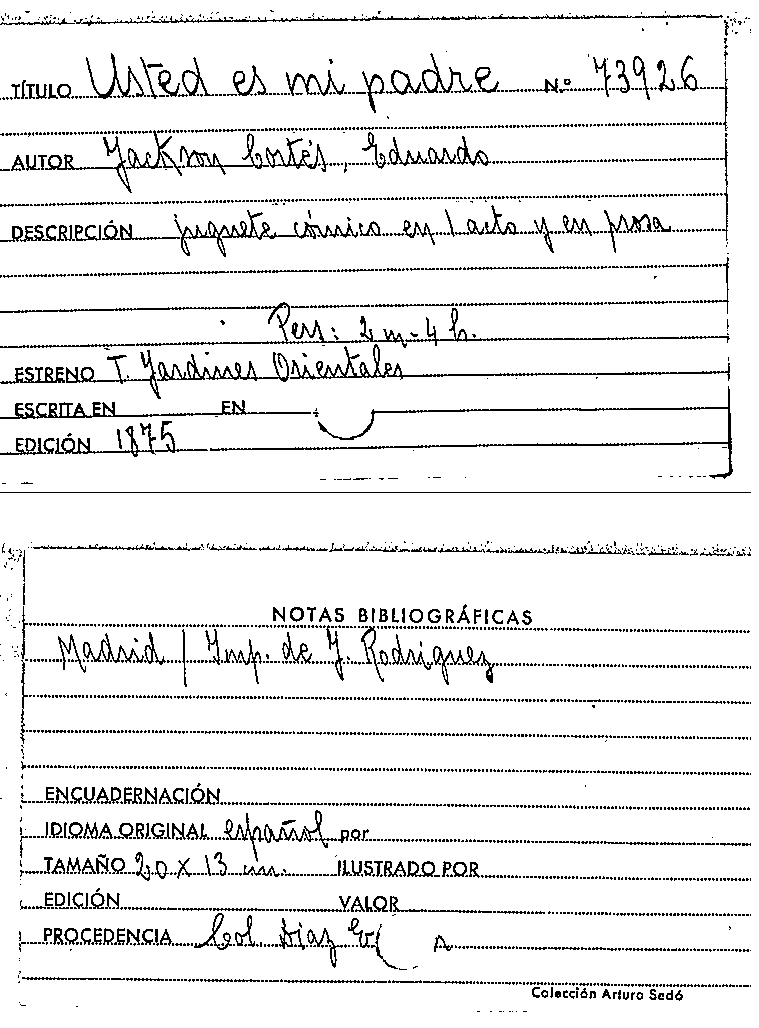 TÍTULO Usted es mi padre Nº 73926
AUTOR Jackson Cortés, Eduardo
DESCRIPCIÓN juguete cómico en 1 acto y en prosa
Pers: 2 m-4 h.
ESTRENO T. Jardines Orientales
ESCRITA EN EN
EDICIÓN 1875
NOTAS BIBLIOGRÁFICAS
Madrid / Imp. de J. Rodriguez
ENCUADERNACIÓN
IDIOMA ORIGINAL español por
TAMAÑO 20 X 13 cm. ILUSTRADO POR
EDICIÓN VALOR
PROCEDENCIA Col. Diaz
Colección Arturo Sedó